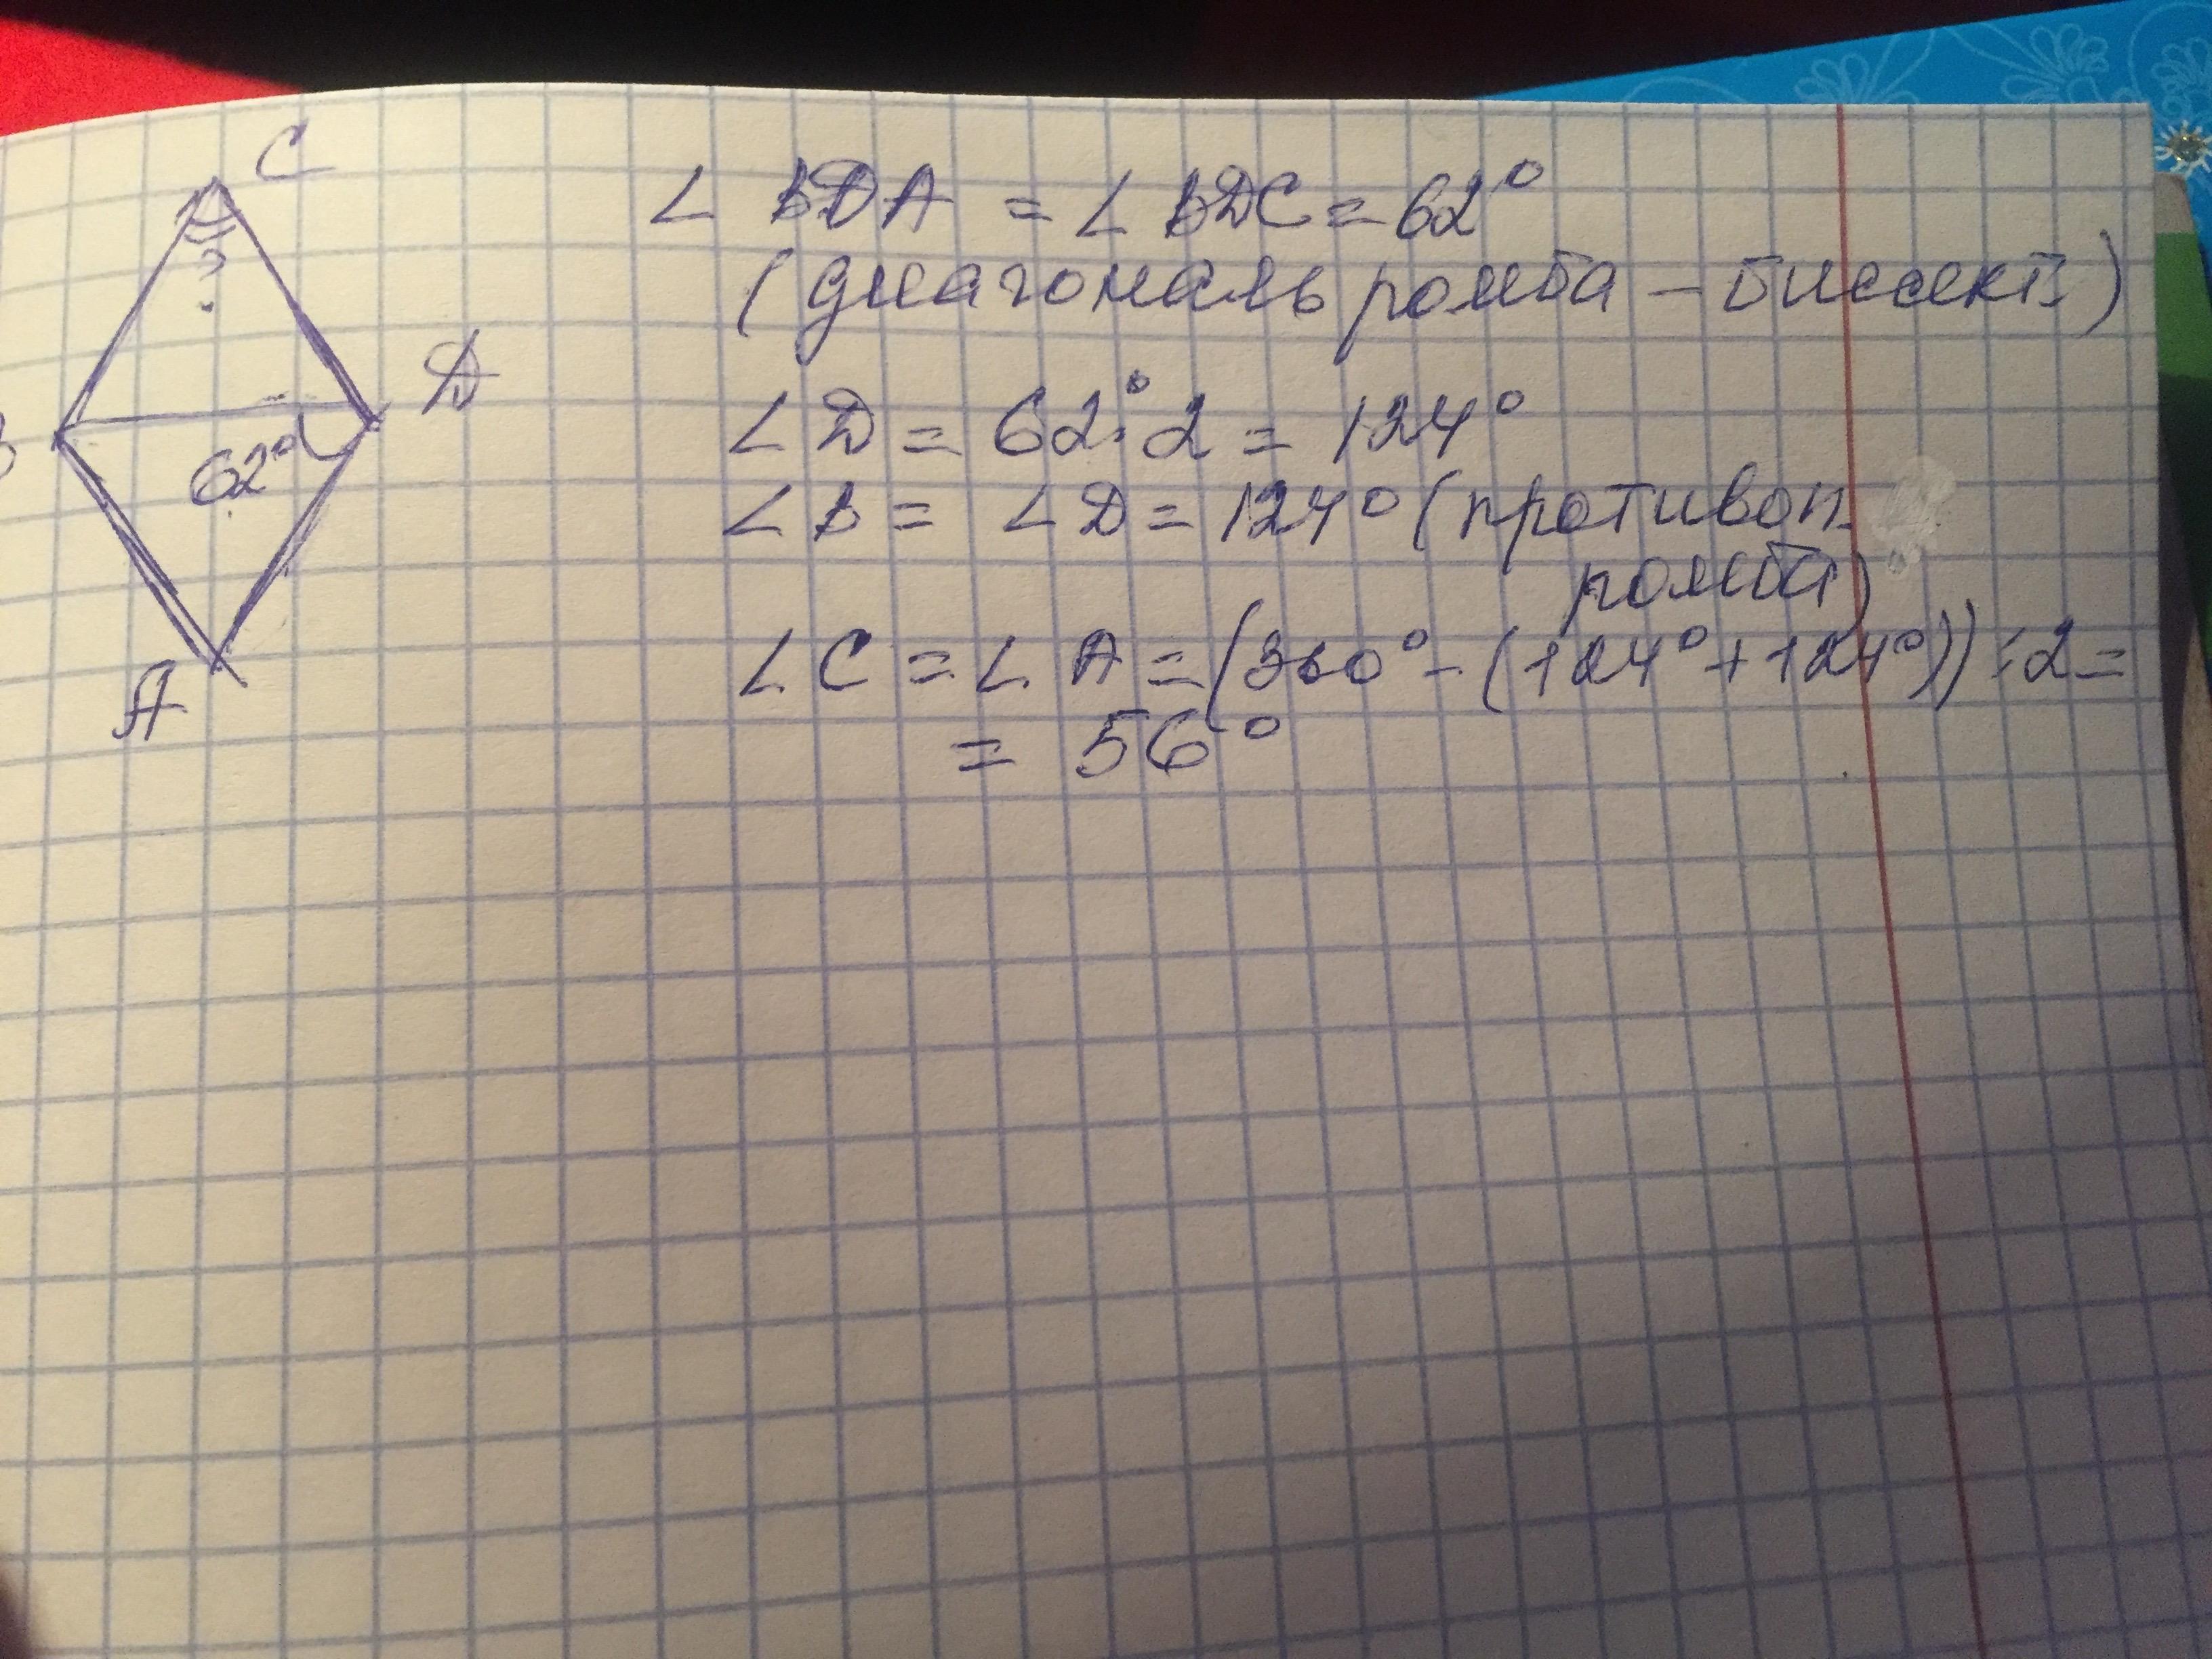 C
∠ BDA = ∠ BDC = 62°
(диагональ ромба – биссект.)
?
D
B
62°
∠ D = 62°·2 = 124°
∠ B = ∠ D = 124° (противоп.
ромба)
∠ C = ∠ A = (360° - (124° + 124°)) : 2 =
= 56°
A